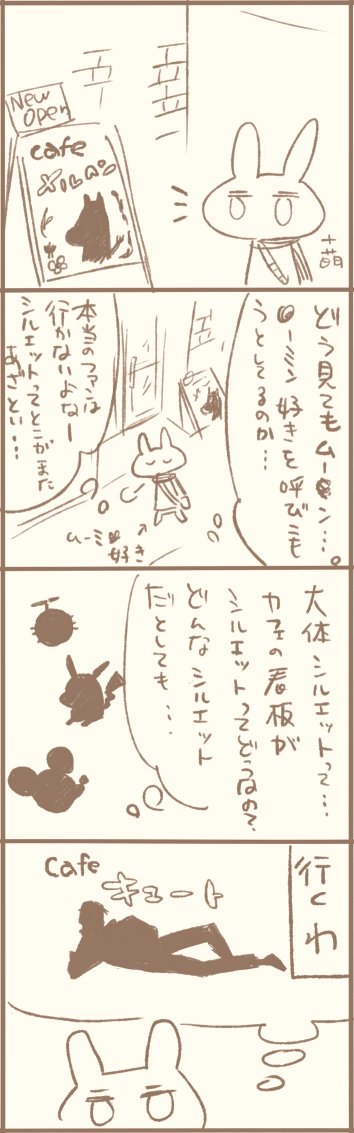 New
open
cafe
メルヘン
十萌
どう見てもムー●ン…
●ーミン好きを呼びこも
うとしてるのか…
本当のファンは
行かないよなー
シルエットってとこがまた
あざとい…
ムーミ●
好き
大体シルエットって…
カフェの看板が
シルエットってどうなの?
どんなシルエット
だとしても…
Cafe
キュート
行くわ